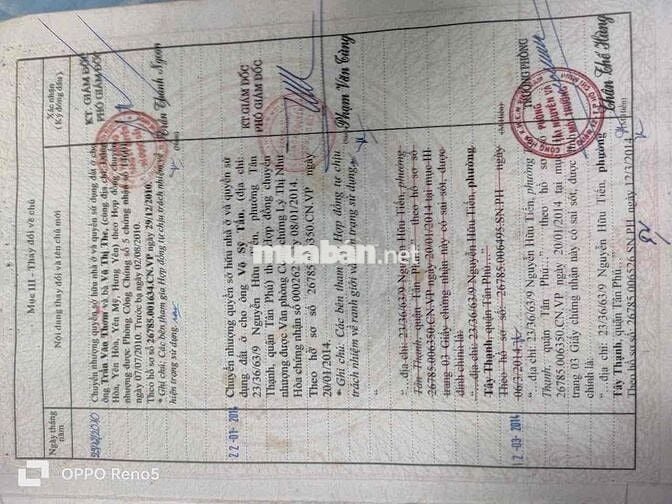 Mục III - Thay đổi về chủ
Ngày tháng năm
Nội dung thay đổi và tên chủ mới
Xác nhận
(Ký đóng dấu)
29/12/2010
Chuyển nhượng quyền sở hữu nhà ở và quyền sử dụng đất ở cho
ông Trần Văn Thơm và bà Vũ Thị The, (cùng địa chỉ:
Hòa, Yên Hòa, Yên Mỹ, Hưng Yên) theo Hợp đồng chuyển
nhượng được Phòng Công Chứng số 5 chứng nhận số
ngày 07/07/2010. Trước bạ ngày 02/08/2010.
Theo hồ sơ số 26785.001634.CN.VP ngày 29/12/2010.
* Ghi chú: Các bên tham gia Hợp đồng tự chịu trách nhiệm về
hiện trạng sử dụng.
KT GIÁM ĐỐC
PHÓ GIÁM ĐỐC
22-01-2014
Chuyển nhượng quyền sở hữu nhà ở và quyền sử
dụng đất ở cho ông Võ Sỹ Tân, (địa chỉ:
23/36/63/9 Nguyễn Hữu Tiến, phường Tân
Thạnh, quận Tân Phú) theo Hợp đồng chuyển
nhượng được Văn phòng Công chứng Lý Thị Như
Hòa chứng nhận số 000262 ngày 08/01/2014.
Theo hồ sơ số 26785.006350.CN.VP ngày
20/01/2014.
* Ghi chú: Các bên tham gia Hợp đồng tự chịu
trách nhiệm về ranh giới và hiện trạng sử dụng.
KT GIÁM ĐỐC
PHÓ GIÁM ĐỐC
Phạm Văn Tùng
"...địa chỉ: 23/36/63/9 Nguyễn Hữu Tiến, phường
Tân Thạnh, quận Tân Phú..." theo hồ sơ số
26785.006350.CN.VP ngày 20/01/2014 tại mục III
trang 03 Giấy chứng nhận này có sai sót, được
đính chính là:
"...địa chỉ: 23/36/63/9 Nguyễn Hữu Tiến, phường
Tây Thạnh, quận Tân Phú..."
Theo hồ sơ số: 26785.006495.SN.PH ngày
12-03-2014
"...địa chỉ: 23/36/63/9 Nguyễn Hữu Tiến, phường
Tân Thạnh, quận Tân Phú..." theo hồ sơ số
26785.006350.CN.VP ngày 20/01/2014 tại mục III
trang 03 Giấy chứng nhận này có sai sót, được đính
chính là:
"...địa chỉ: 23/36/63/9 Nguyễn Hữu Tiến, phường
Tây Thạnh, quận Tân Phú..."
Theo hồ sơ số: 26785.006526.SN.PH ngày 12/3/2014
TRƯỞNG PHÒNG
PHÒNG
TÀI NGUYÊN VÀ
MÔI TRƯỜNG
muaban.net
OPPO Reno5